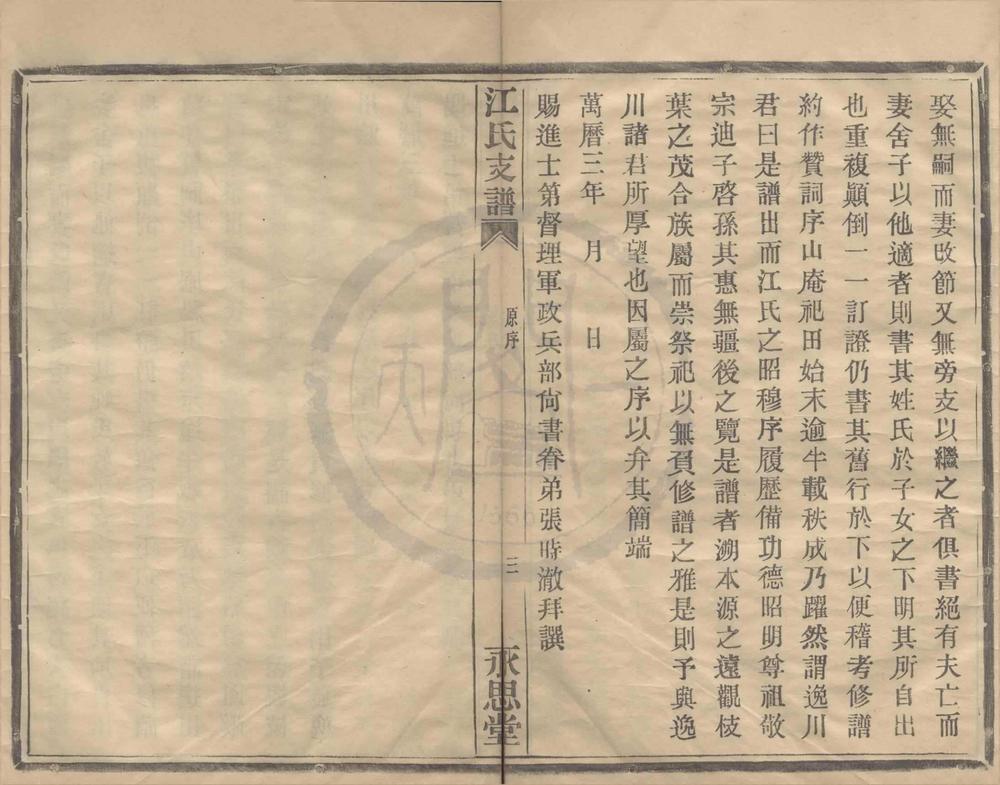 娶無嗣而妻改節又無旁支以繼之者俱書絕有夫亡而
妻舍子以他適者則書其姓氏於子女之下明其所自出
也重複顛倒一一訂證仍書其舊行於下以便稽考修譜
約作贊詞序山庵祀田始末逾半載秩成乃躍然謂逸川
君曰是譜出而江氏之昭穆序履歷備功德昭明尊祖敬
宗迪子啓孫其惠無疆後之覽是譜者溯本源之遠觀枝
葉之茂合族屬而崇祭祀以無負修譜之雅是則予與逸
川諸君所厚望也因屬之序以弁其簡端
萬曆三年 月 日
賜進士第督理軍政兵部尙書眷弟張時澈拜譔
江氏支譜 原序 三 永思堂